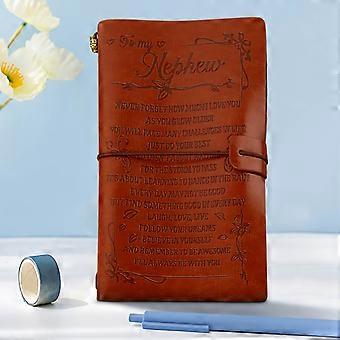 To my
Nephew
NEVER FORGET HOW MUCH I LOVE YOU
AS YOU GROW OLDER
YOU WILL FACE MANY CHALLENGES IN LIFE
JUST DO YOUR BEST
FOR THE STORM TO PASS
IT'S ABOUT LEARNING TO DANCE IN THE RAIN
EVERY DAY MAY NOT BE GOOD
BUT FIND SOMETHING GOOD IN EVERY DAY
LAUGH, LOVE, LIVE
FOLLOW YOUR DREAMS
BELIEVE IN YOURSELF
AND REMEMBER TO BE AWESOME
I'LL ALWAYS BE WITH YOU